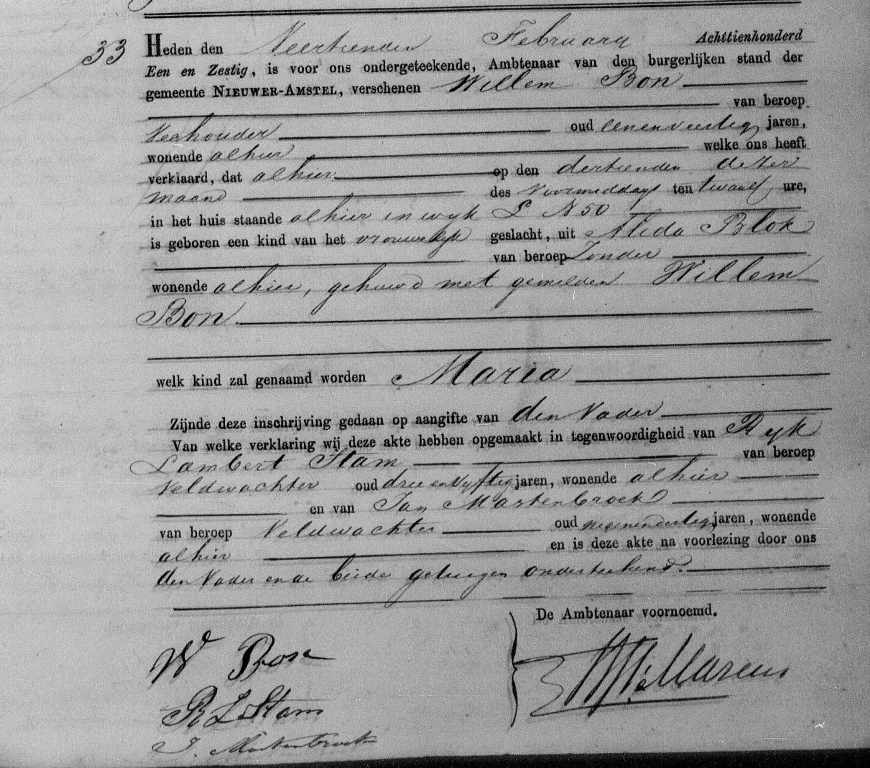 33
Heden den Veertienden February Achttienhonderd
Een en Zestig, is voor ons ondergeteekende, Ambtenaar van den burgerlijken stand der
gemeente NIEUWER-AMSTEL, verschenen Willem Bon
van beroep
Veehouder oud eenenveertig jaren,
wonende alhier welke ons heeft
verklaard, dat alhier op den dertienden dezer
maand des voormiddags ten twaalf ure,
in het huis staande alhier in wyk L N 50
is geboren een kind van het vrouwelyk geslacht, uit Alida Blok
van beroep Zonder
wonende alhier, gehuwd met gemelden Willem
Bon
welk kind zal genaamd worden Maria
Zijnde deze inschrijving gedaan op aangifte van den Vader
Van welke verklaring wij deze akte hebben opgemaakt in tegenwoordigheid van Ryk
Lambert Stam van beroep
Veldwachter oud drie en Vyftig jaren, wonende alhier
en van Jan Mastenbroek
van beroep Veldwachter oud negenendertig jaren, wonende
alhier en is deze akte na voorlezing door ons
den Vader en de beide getuigen onderteekend.
De Ambtenaar voornoemd.
W Bon
R L Stam
J. Mastenbroek